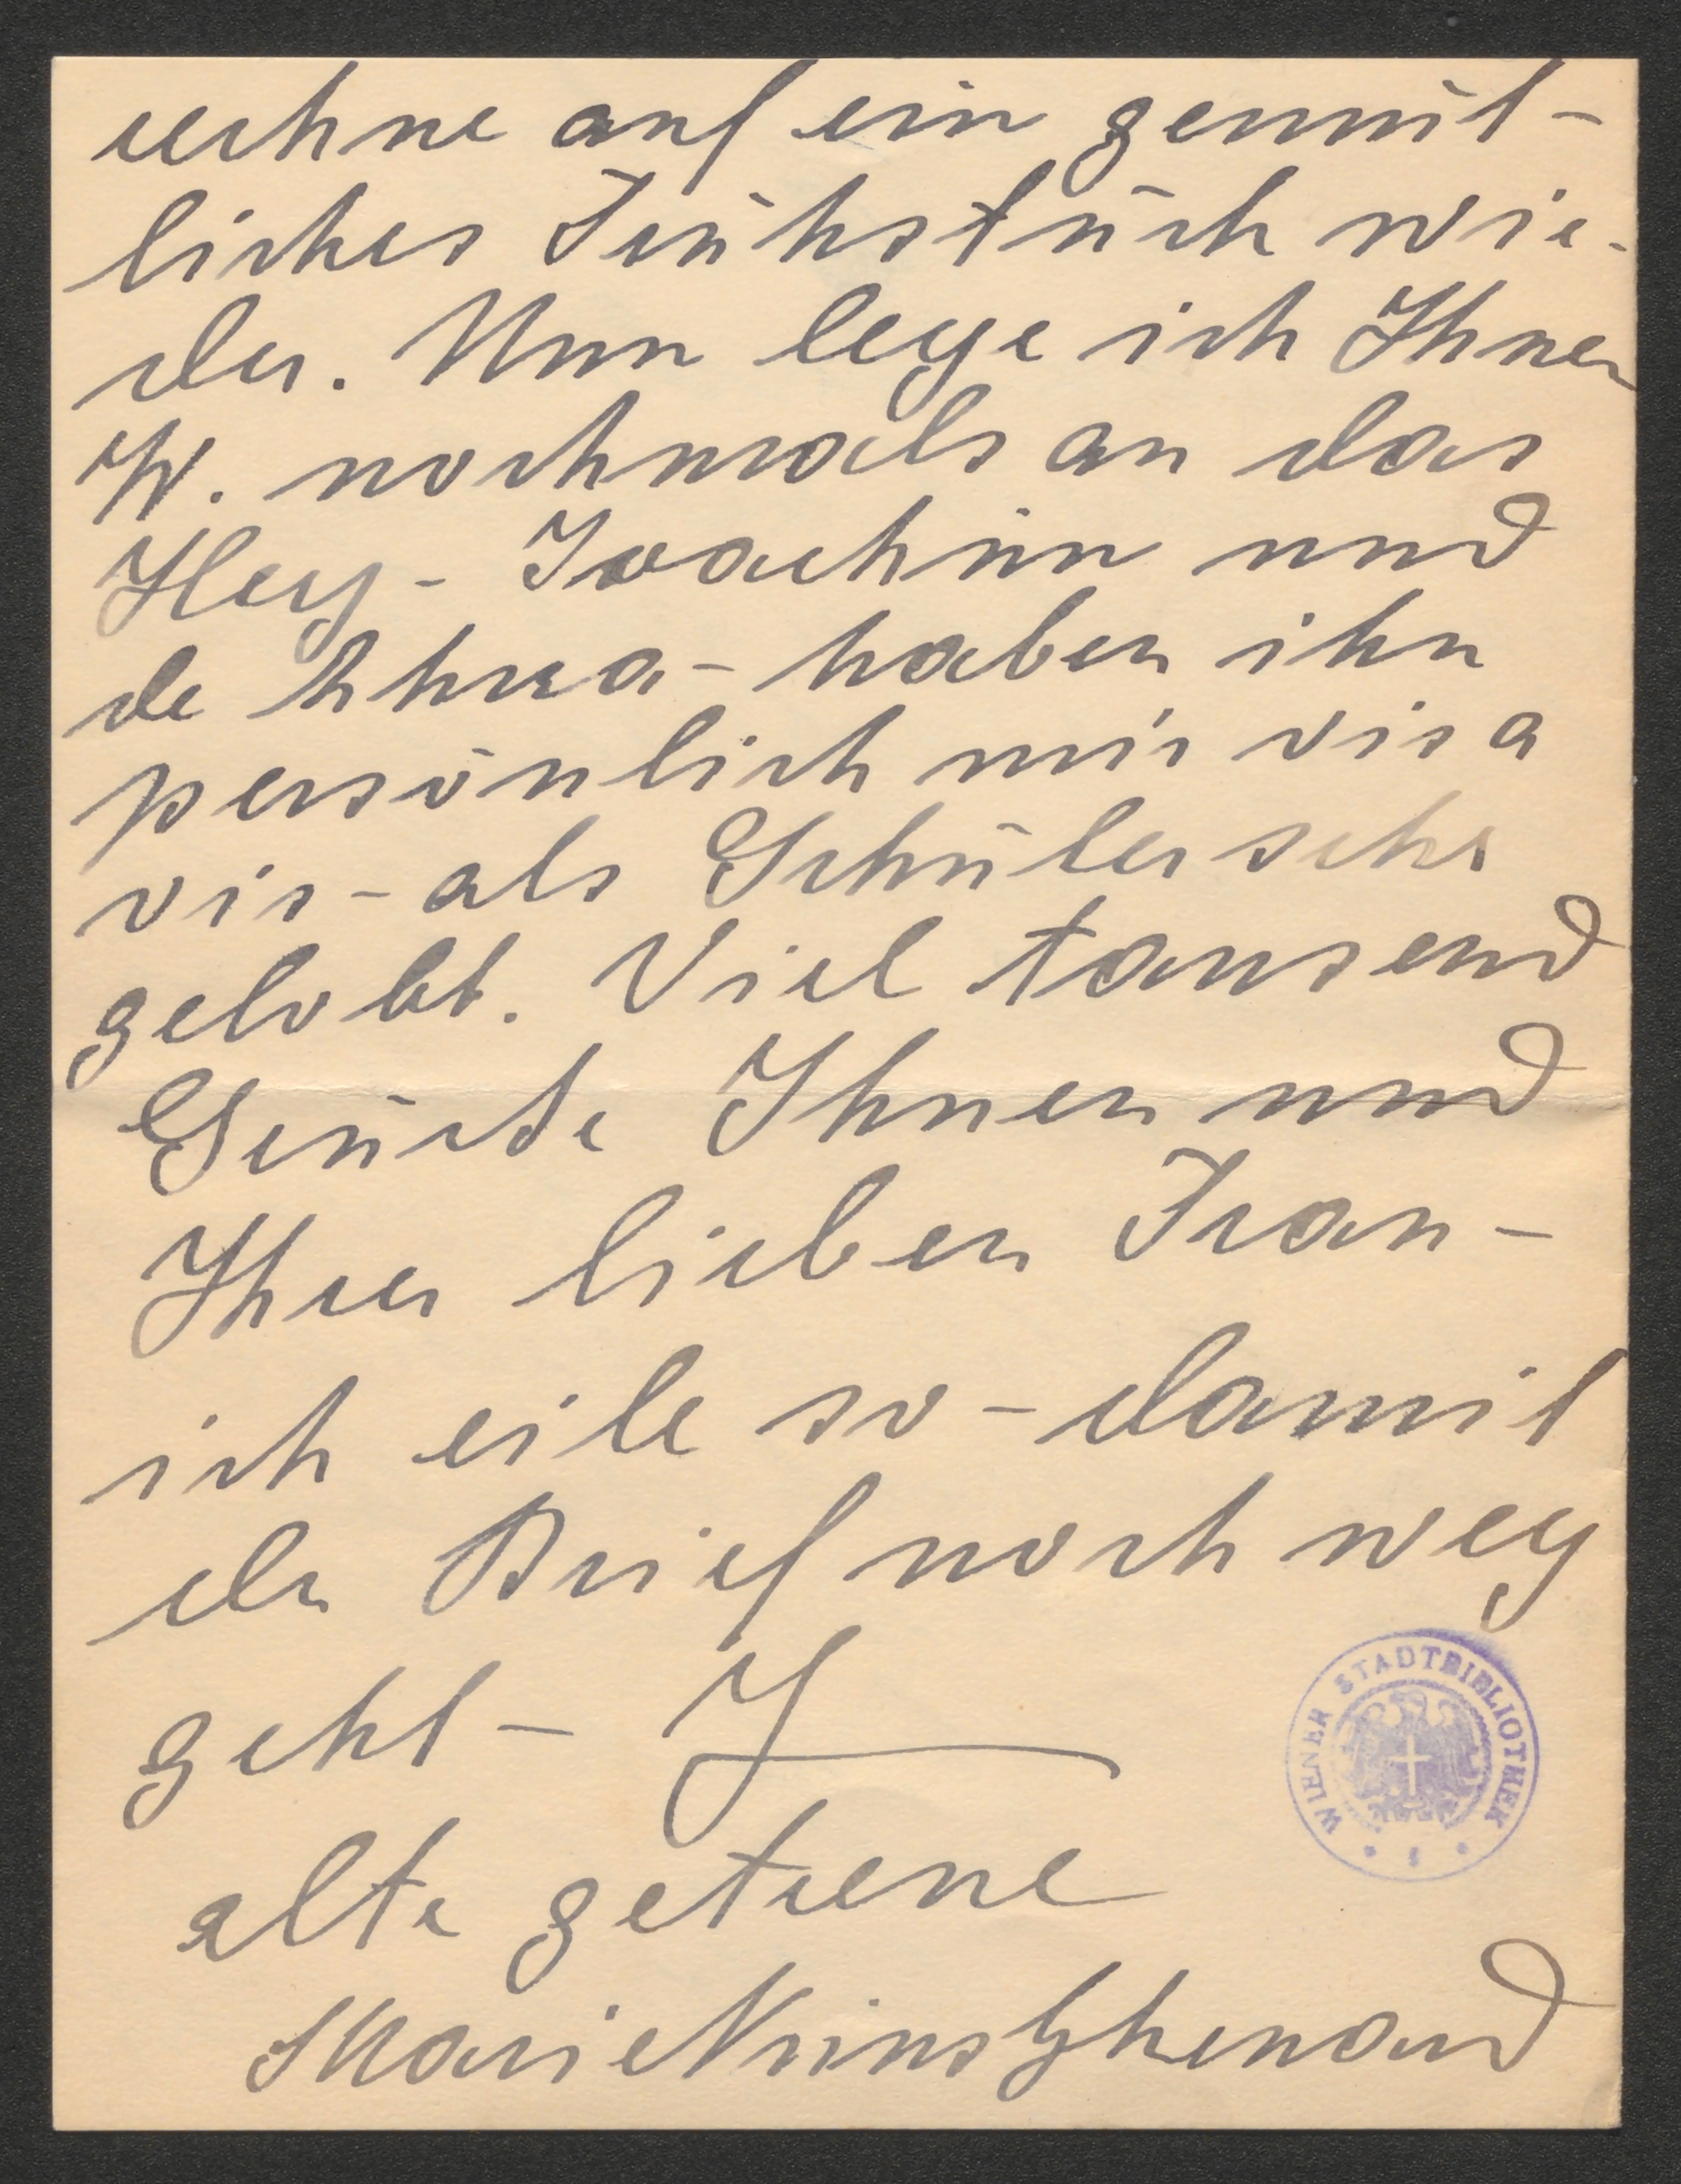 rechne auf ein gemüt-
liches Frühstück wie-
der. Nun lege ich Ihnen
W. nochmals an das
Herz - Joachim und
de Ahna - haben ihn
persönlich mir vis a
vis - als Schüler sehr
gelobt. Viel tausend
Grüße Ihnen und
Ihrer lieben Frau -
ich eile so - damit
der Brief noch weg
geht - I
alte getreue
Marie
WIENER STADTBIBLIOTHEK